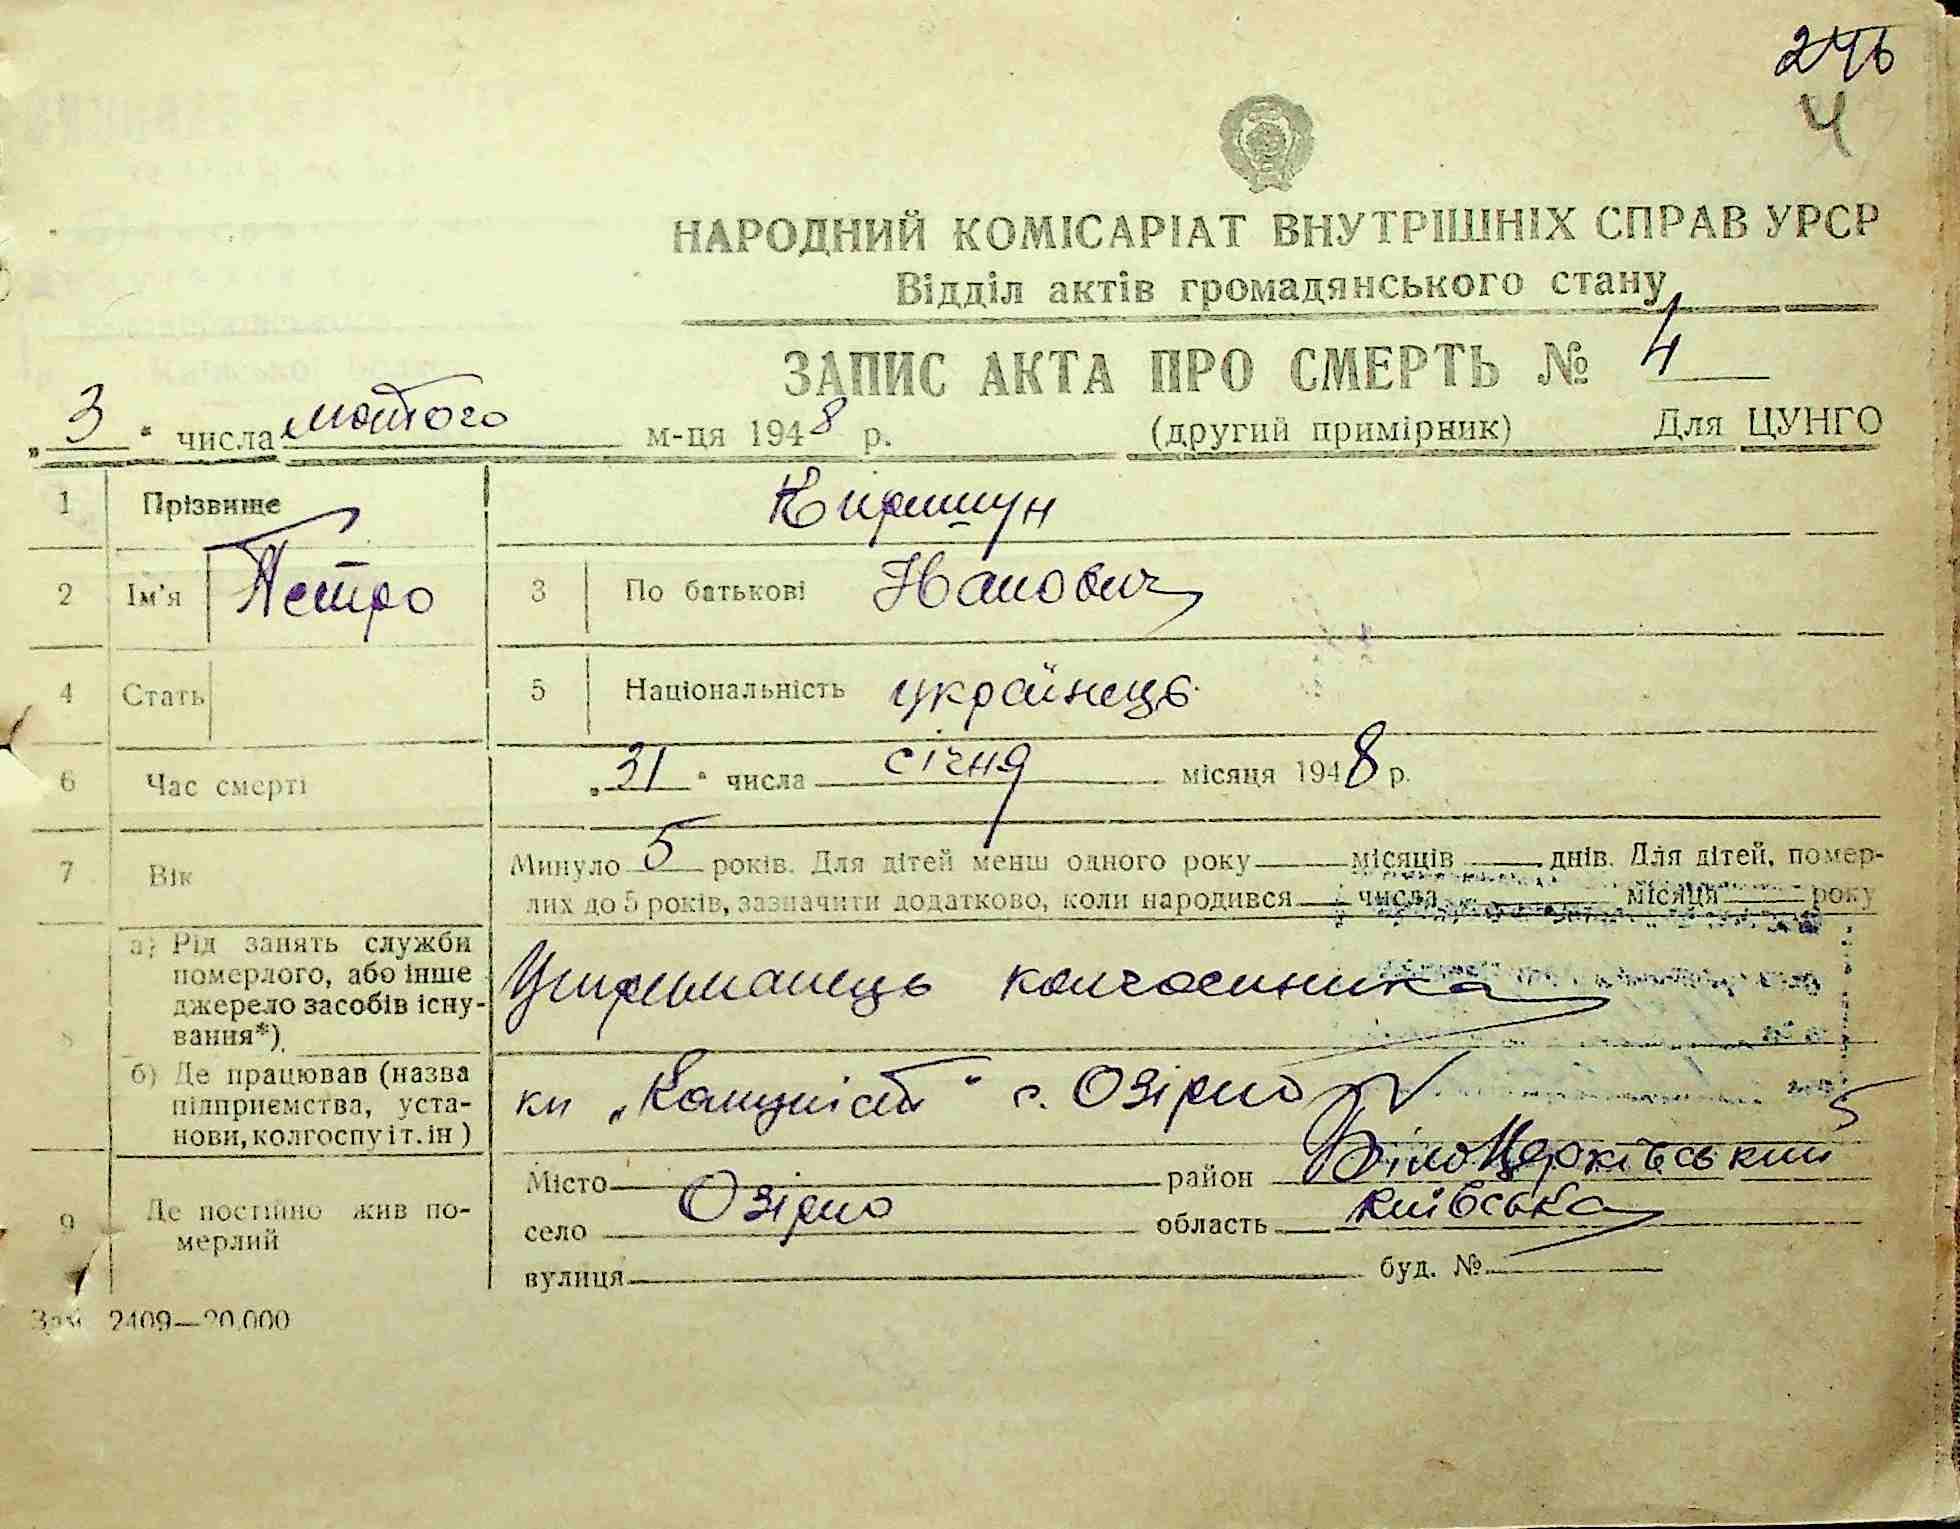 246
4
НАРОДНИЙ КОМІСАРІАТ ВНУТРІШНІХ СПРАВ УРСР
Відділ актів громадянського стану
ЗАПИС АКТА ПРО СМЕРТЬ № 4
„3“ числа лютого м-ця 1948 р. (другий примірник) Для ЦУНГО
1 Прізвище Киришун
2 Ім'я Петро 3 По батькові Іванович
4 Стать 5 Національність українець
6 Час смерті „31“ числа січня місяця 1948 р.
7 Вік Минуло 5 років. Для дітей менш одного року — місяців — днів. Для дітей, помер-
лих до 5 років, зазначити додатково, коли народився — числа — місяця — року
8 а) Рід занять служби померлого, або інше джерело засобів існу-вання*) Утриманець колгоспника
б) Де працював (назва підприємства, уста-нови, колгоспу і т. ін) кп „Комуніст“ с. Озірно
9 Де постійно жив по-мерлий
Місто — район Білоцерківський
село Озірно область Київська
вулиця буд. №
Зам. 2409—20.000